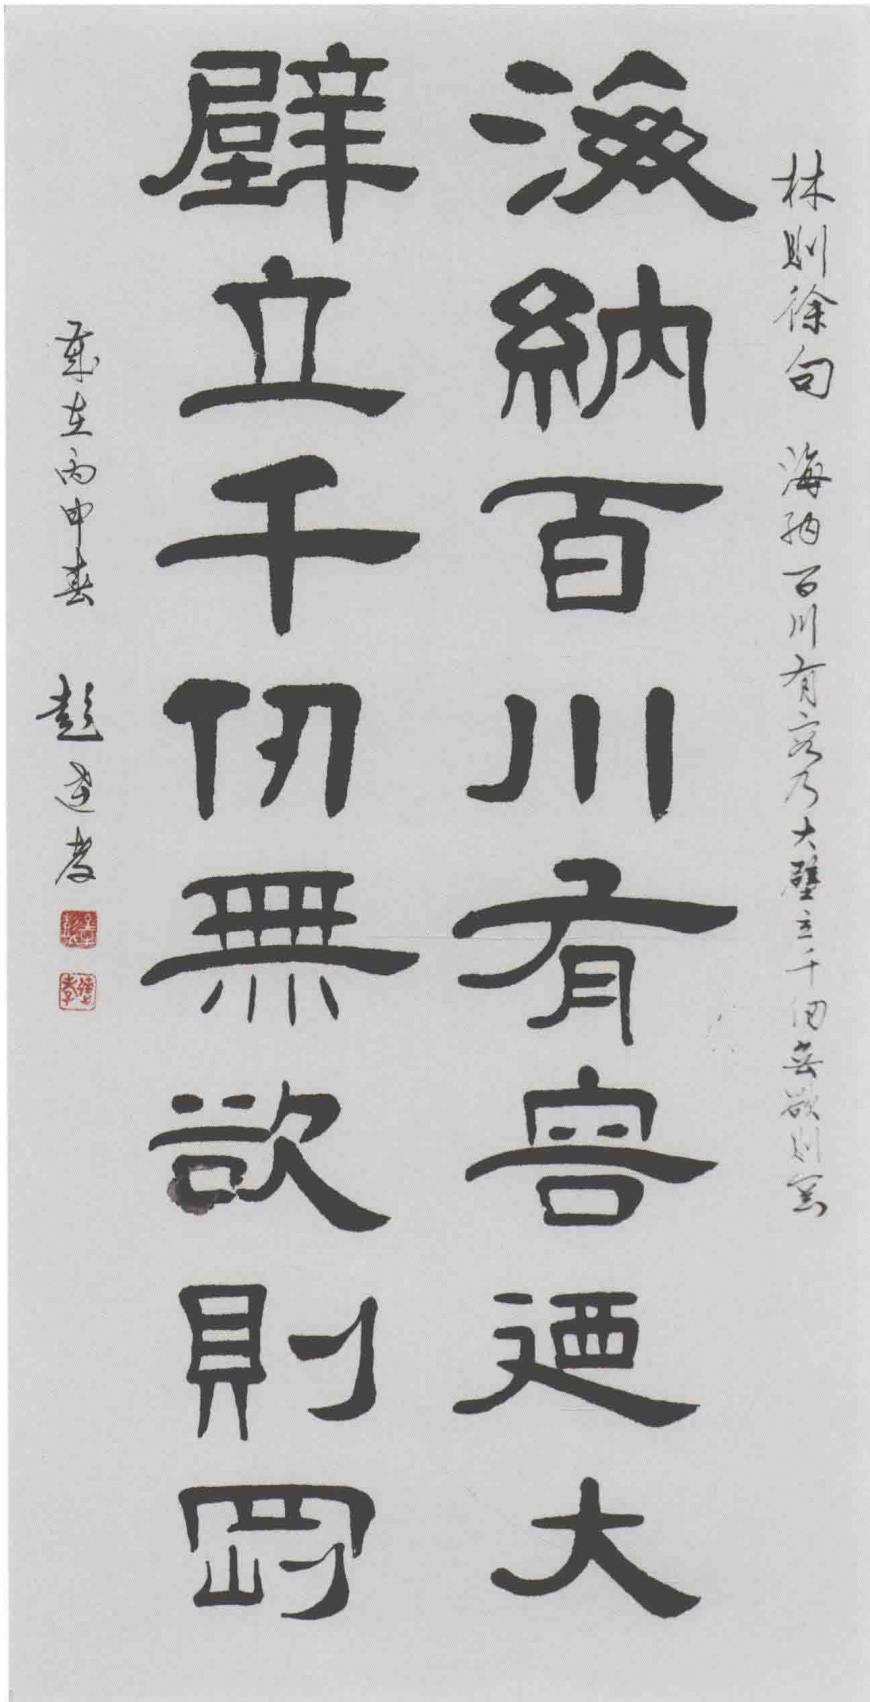 林則徐句 海納百川有容乃大壁立千仞無欲則剛
海納百川有容廼大
壁立千仞無欲則剛
歲在丙申春 彭達孝